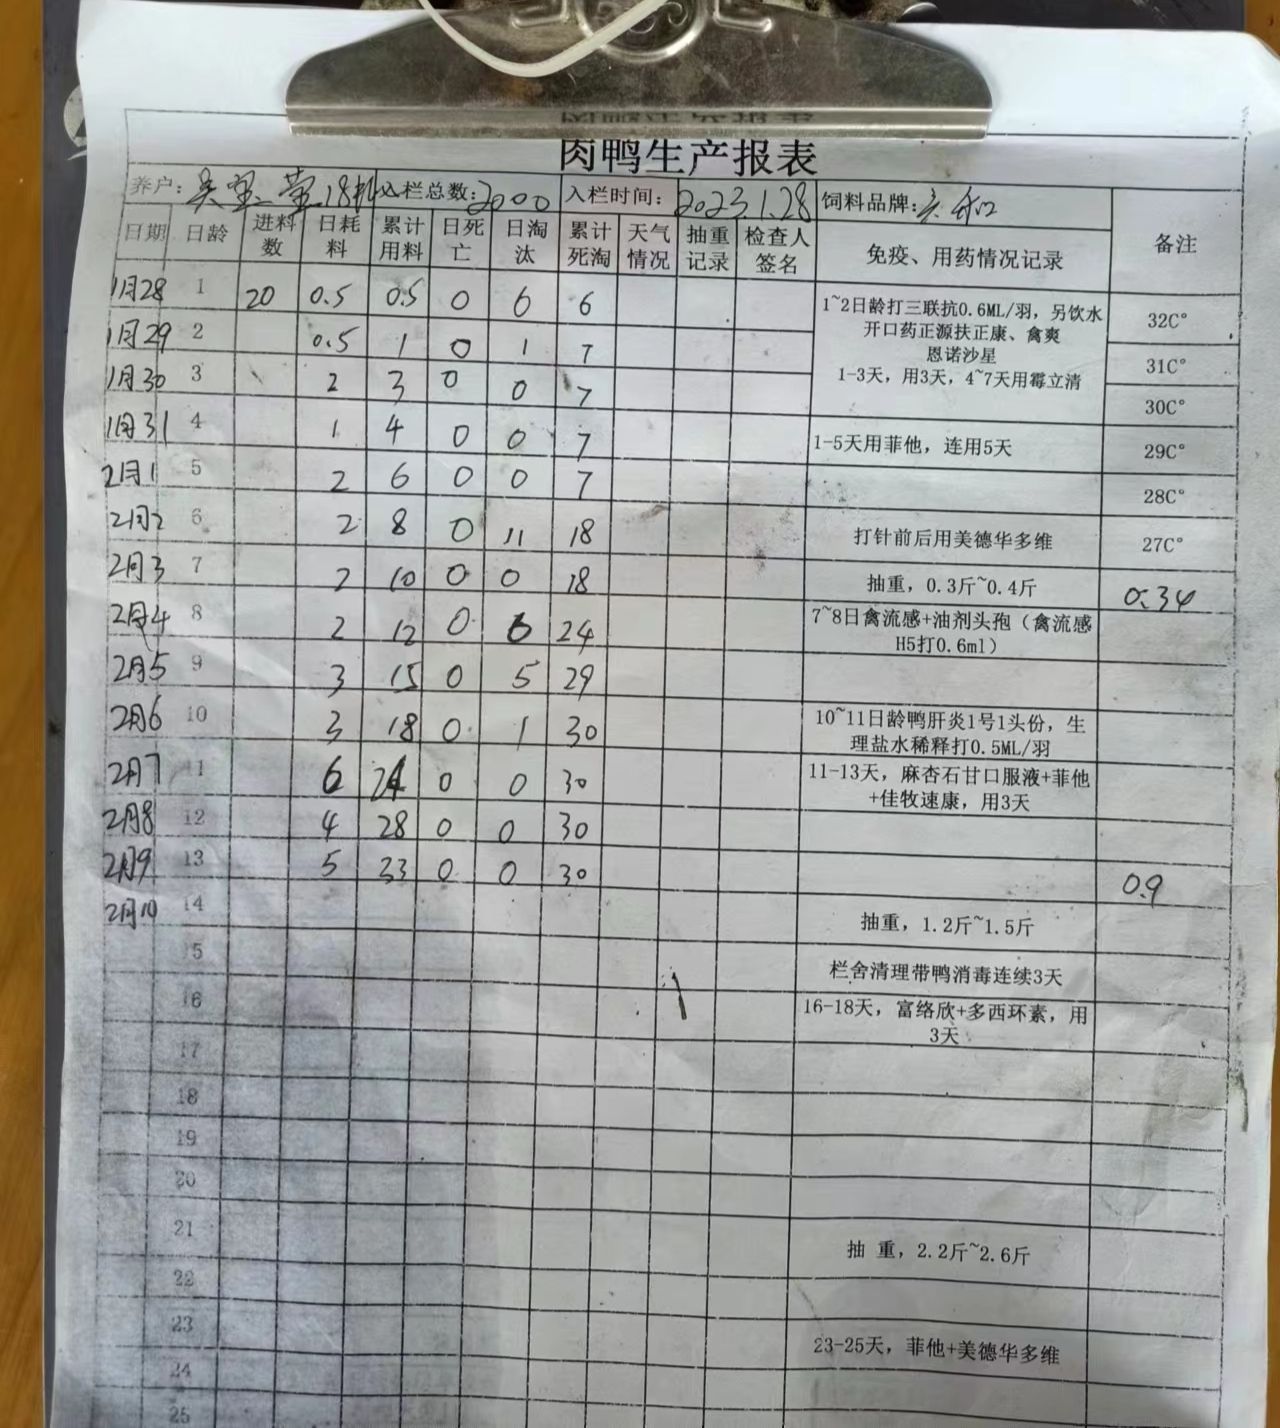 肉鸭生产报表
养户: 入栏总数: 2000 入栏时间: 2023.1.28 饲料品牌: 六和
日期 日龄 进料数 日耗料 累计用料 日死亡 日淘汰 累计死淘 天气情况 抽重记录 检查人签名 免疫、用药情况记录 备注
1月28 1 20 0.5 0.5 0 6 6
1~2日龄打三联抗0.6ML/羽，另饮水
开口药正源扶正康、禽爽
恩诺沙星
1-3天，用3天，4~7天用霉立清
32C°
1月29 2 0.5 1 0 1 7 31C°
1月30 3 2 3 0 0 7 30C°
1月31 4 1 4 0 0 7 1-5天用菲他，连用5天 29C°
2月1 5 2 6 0 0 7 28C°
2月2 6 2 8 0 11 18 打针前后用美德华多维 27C°
2月3 7 2 10 0 0 18 抽重，0.3斤~0.4斤 0.34
2月4 8 2 12 0 6 24 7~8日禽流感+油剂头孢（禽流感
H5打0.6ml）
2月5 9 3 15 0 5 29
2月6 10 3 18 0 1 30 10~11日龄鸭肝炎1号1头份，生
理盐水稀释打0.5ML/羽
2月7 11 6 24 0 0 30 11-13天，麻杏石甘口服液+菲他
+佳牧速康，用3天
2月8 12 4 28 0 0 30
2月9 13 5 33 0 0 30 0.9
2月10 14 抽重，1.2斤~1.5斤
15 栏舍清理带鸭消毒连续3天
16 16-18天，富络欣+多西环素，用
3天
17
18
19
20
21 抽 重，2.2斤~2.6斤
22
23 23-25天，菲他+美德华多维
24
25